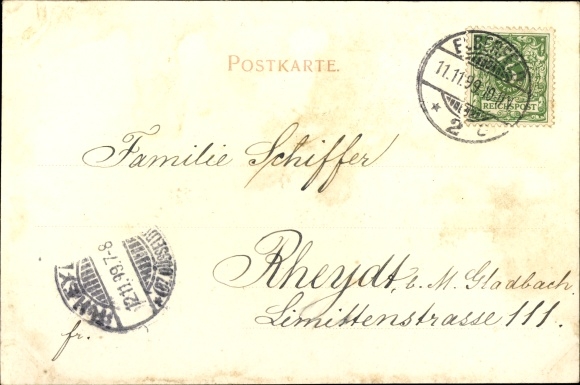 POSTKARTE.
11.11.99
REICHSPOST
* 2 c
Familie Schiffer
Rheydt, b. M. Gladbach.
Limittenstrasse 111.
12.11.99.7-8
fr.